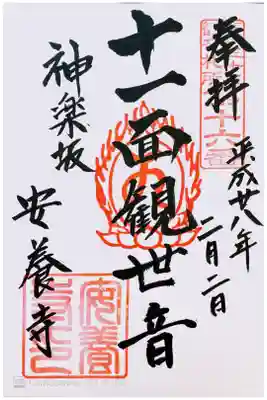 奉拝
十六番
平成廿八年
二月二日
十一面観世音
神楽坂
安養寺
安養
寺印